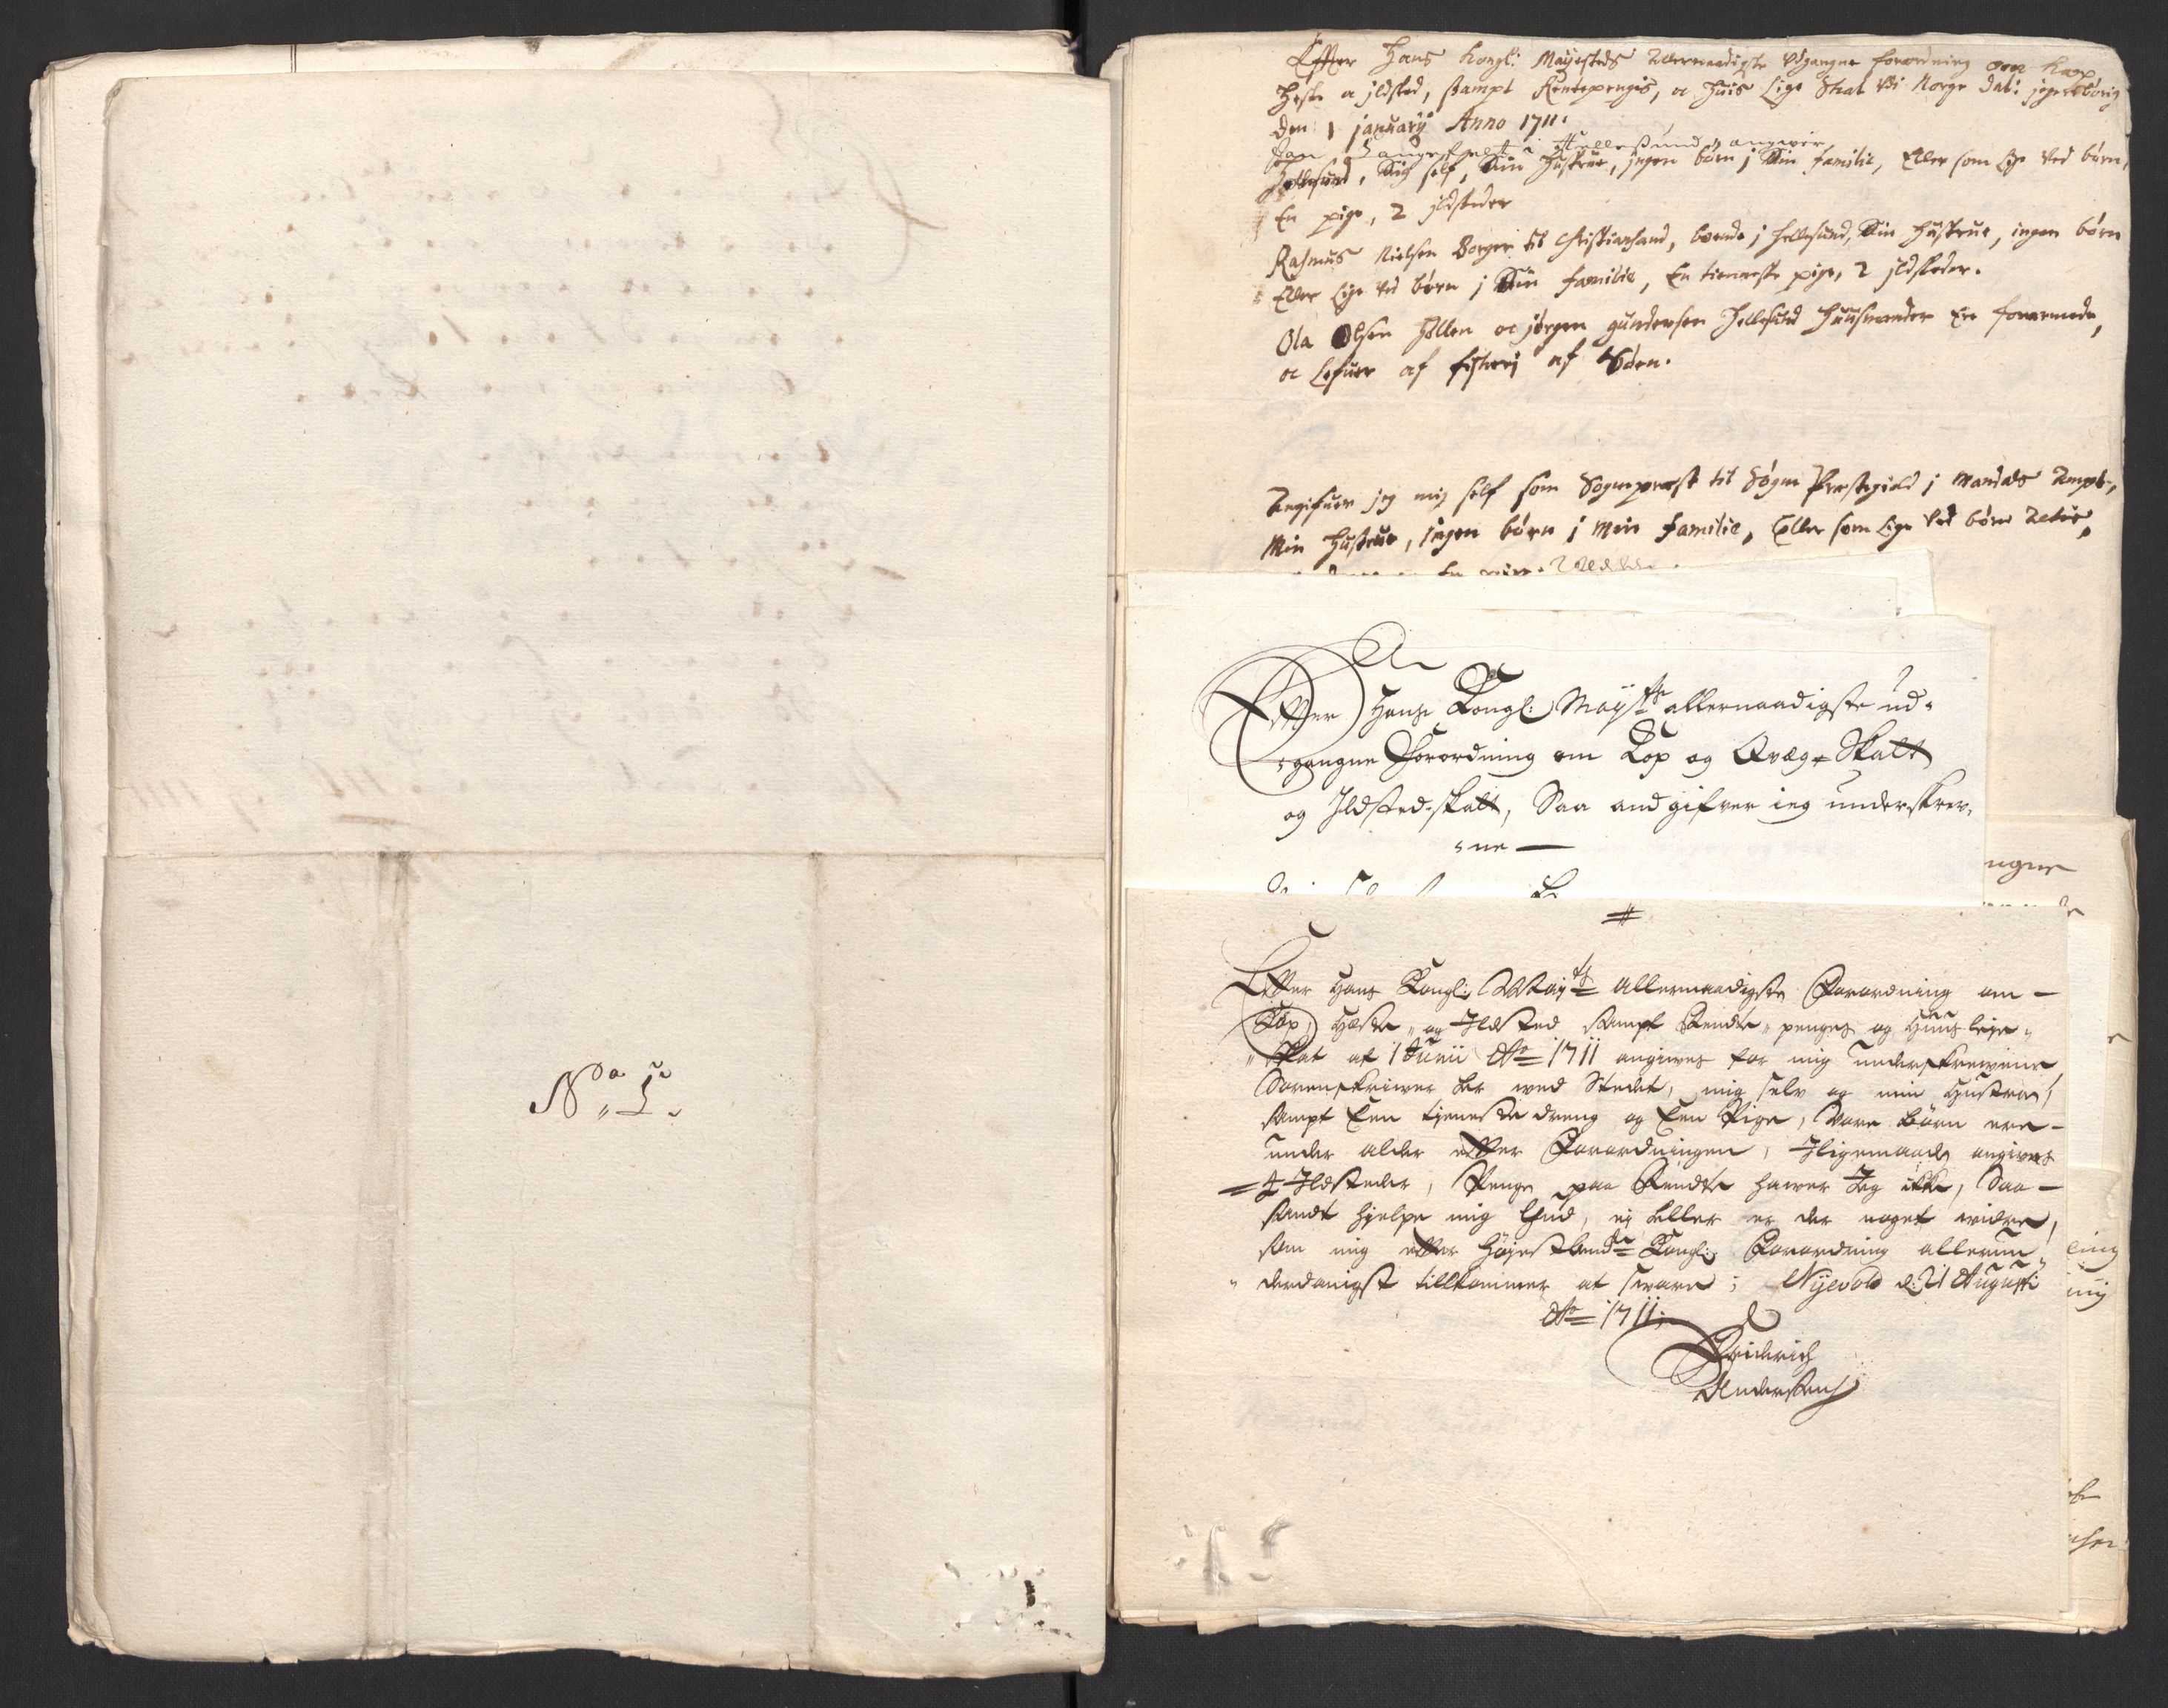 No 5.
Effter Hans Kongl: Mayesteds Allernaadigste Udgangne forordning om kop
Heste oc jldsted, sampt Rentepengis, oc Huus Lige Skat udi Norge Dat: jegersborig
Den 1 january Anno 1711.
Hellesund angiver,
Hellesund, Sig self, Sin Hustrue, jngen børn j Sin familie, Eller som Lige Ved børn,
En pige, 2 jldsteder
Rasmus Nielsen Borger til Christiansand, boende j Hellesund, Sin Hustrue, ingen børn
Eller Lige Ved børn j Sin familie, En tieneste pige, 2 jldsteder.
Ola Olsen Hellen oc jørgen gundersen Hellesund Huusmænder Ere forarmede,
oc Lefuer af fisheri af Søen.
Angifuer jeg mig self som Sognepræst til Søgne Præstegield j Mandals Ampt,
Min Hustrue, jngen børn j Min familie, Eller som Lige Ved børn Actis,
Effter Hans Kongl: Mayts allernaadigste ud-
-gangne Forordning om Kop og Qvæg-Skatt
og Ildsted-skatt, Saa andgifver ieg underskrev-
-ne
ngne
Effter Hans Kongl: Mayts Allernaadigste Forordning om
Kop, Heste, og Ildsted sampt Rendte-penges og Huus leye-
-Skat af 1 Junii Ao 1711 angives for mig underskrevne
Sorenskriver her ved Stedet, mig selv og min Hustru,
sampt Een tjeneste dreng og Een Pige, Vore Børn ere
under alder effter Forordningen, Jligemaade angives
4 Ildsteder, Penge paa Rendte haver Jeg ikke, Saa
sandt hjelpe mig Gud, ej heller er der noget videre,
som mig effter høyestbemte Kongl: Forordning allerun-
-derdanigst tillkommer at svare; Nijevold d: 21 Augusti
Ao 1711;
Friderich
Andersen